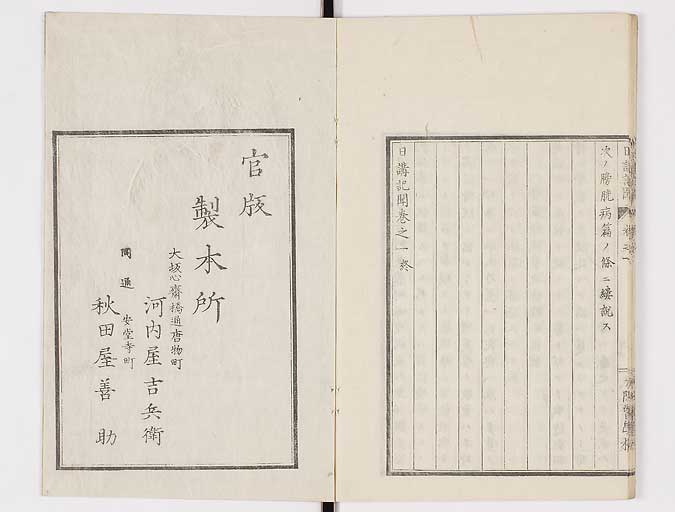 次ノ膀胱病篇ノ條ニ縷説ス
日講記聞巻之一終
官版
製本所
大坂心齋橋通唐物町
河内屋吉兵衛
同通 安堂寺町
秋田屋善助